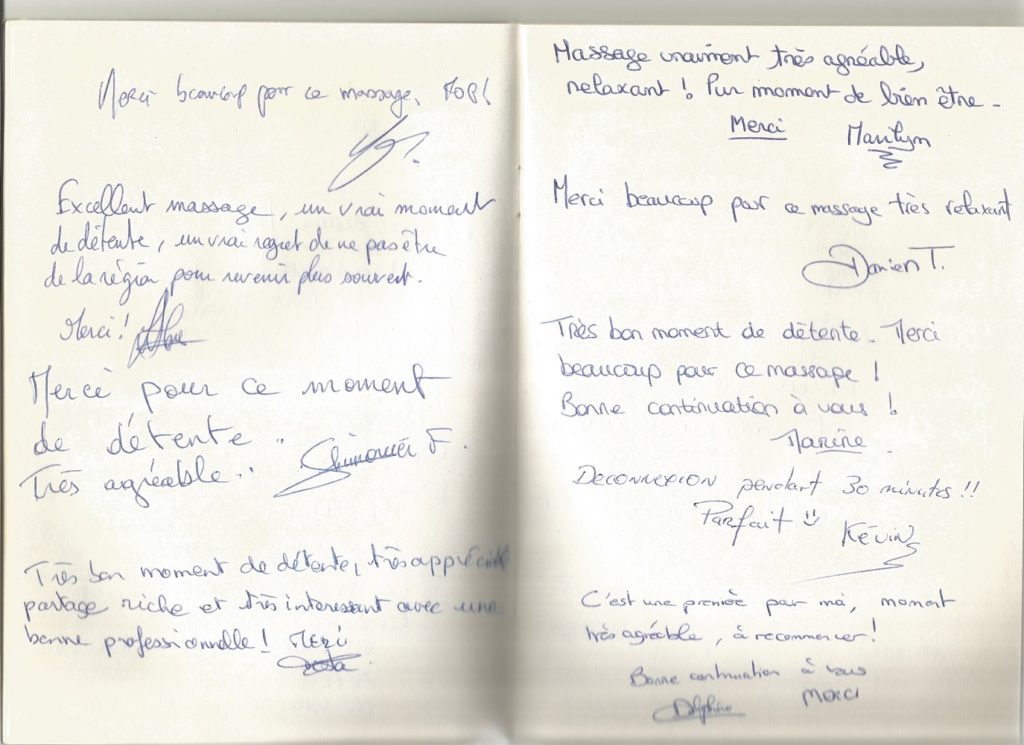 Merci beaucoup pour ce massage, TOP!
Excellent massage, un vrai moment
de détente, un vrai regret de ne pas être
de la région pour revenir plus souvent.
Merci!
Merci pour ce moment
de détente..
Très agréable..
F.
Très bon moment de détente, très apprécié
partage riche et très interessant avec une
bonne professionnelle! Merci
Massage vraiment très agréable,
relaxant! Pur moment de bien être -
Merci Marilyn
Merci beaucoup pour ce massage très relaxant
Damien T.
Très bon moment de détente. Merci
beaucoup pour ce massage !
Bonne continuation à vous !
Marine
DECONNEXION pendant 30 minutes !!
Parfait
Kévin
C'est une première pour moi, moment
très agréable, à recommencer!
Bonne continuation à vous
Merci
Delphine